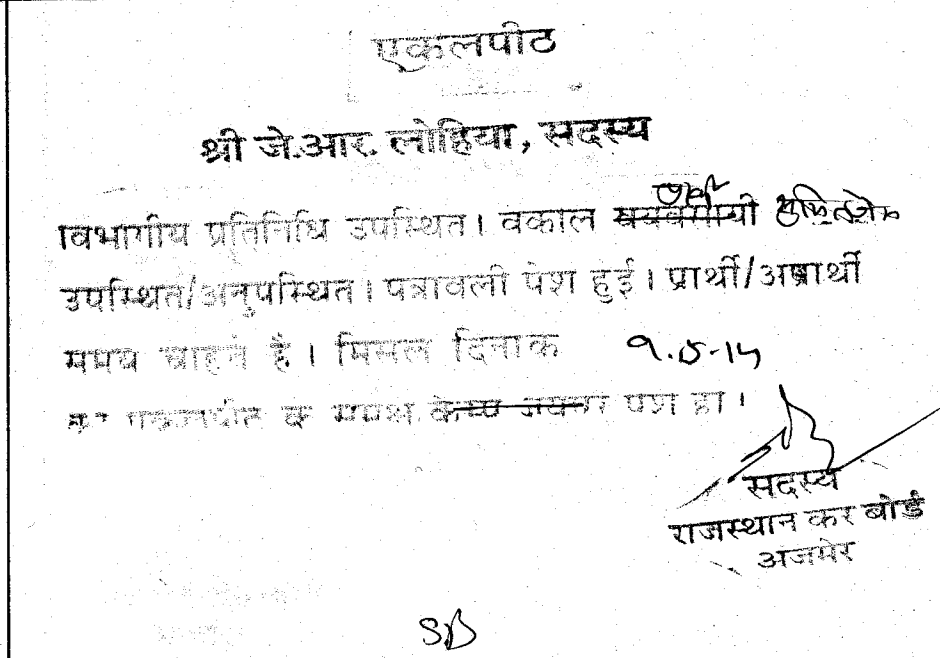 एकलपीठ
श्री जे.आर. लोहिया, सदस्य
विभागीय प्रतिनिधि उपस्थित। वकील
उपस्थित/अनुपस्थित। पत्रावली पेश हुई। प्रार्थी/अप्रार्थी
समय चाहते है। मिसल दिनांक
को एकलपीठ के समक्ष केम्प जयपुर पेश हो।
सदस्य
राजस्थान कर बोर्ड
अजमेर
SB